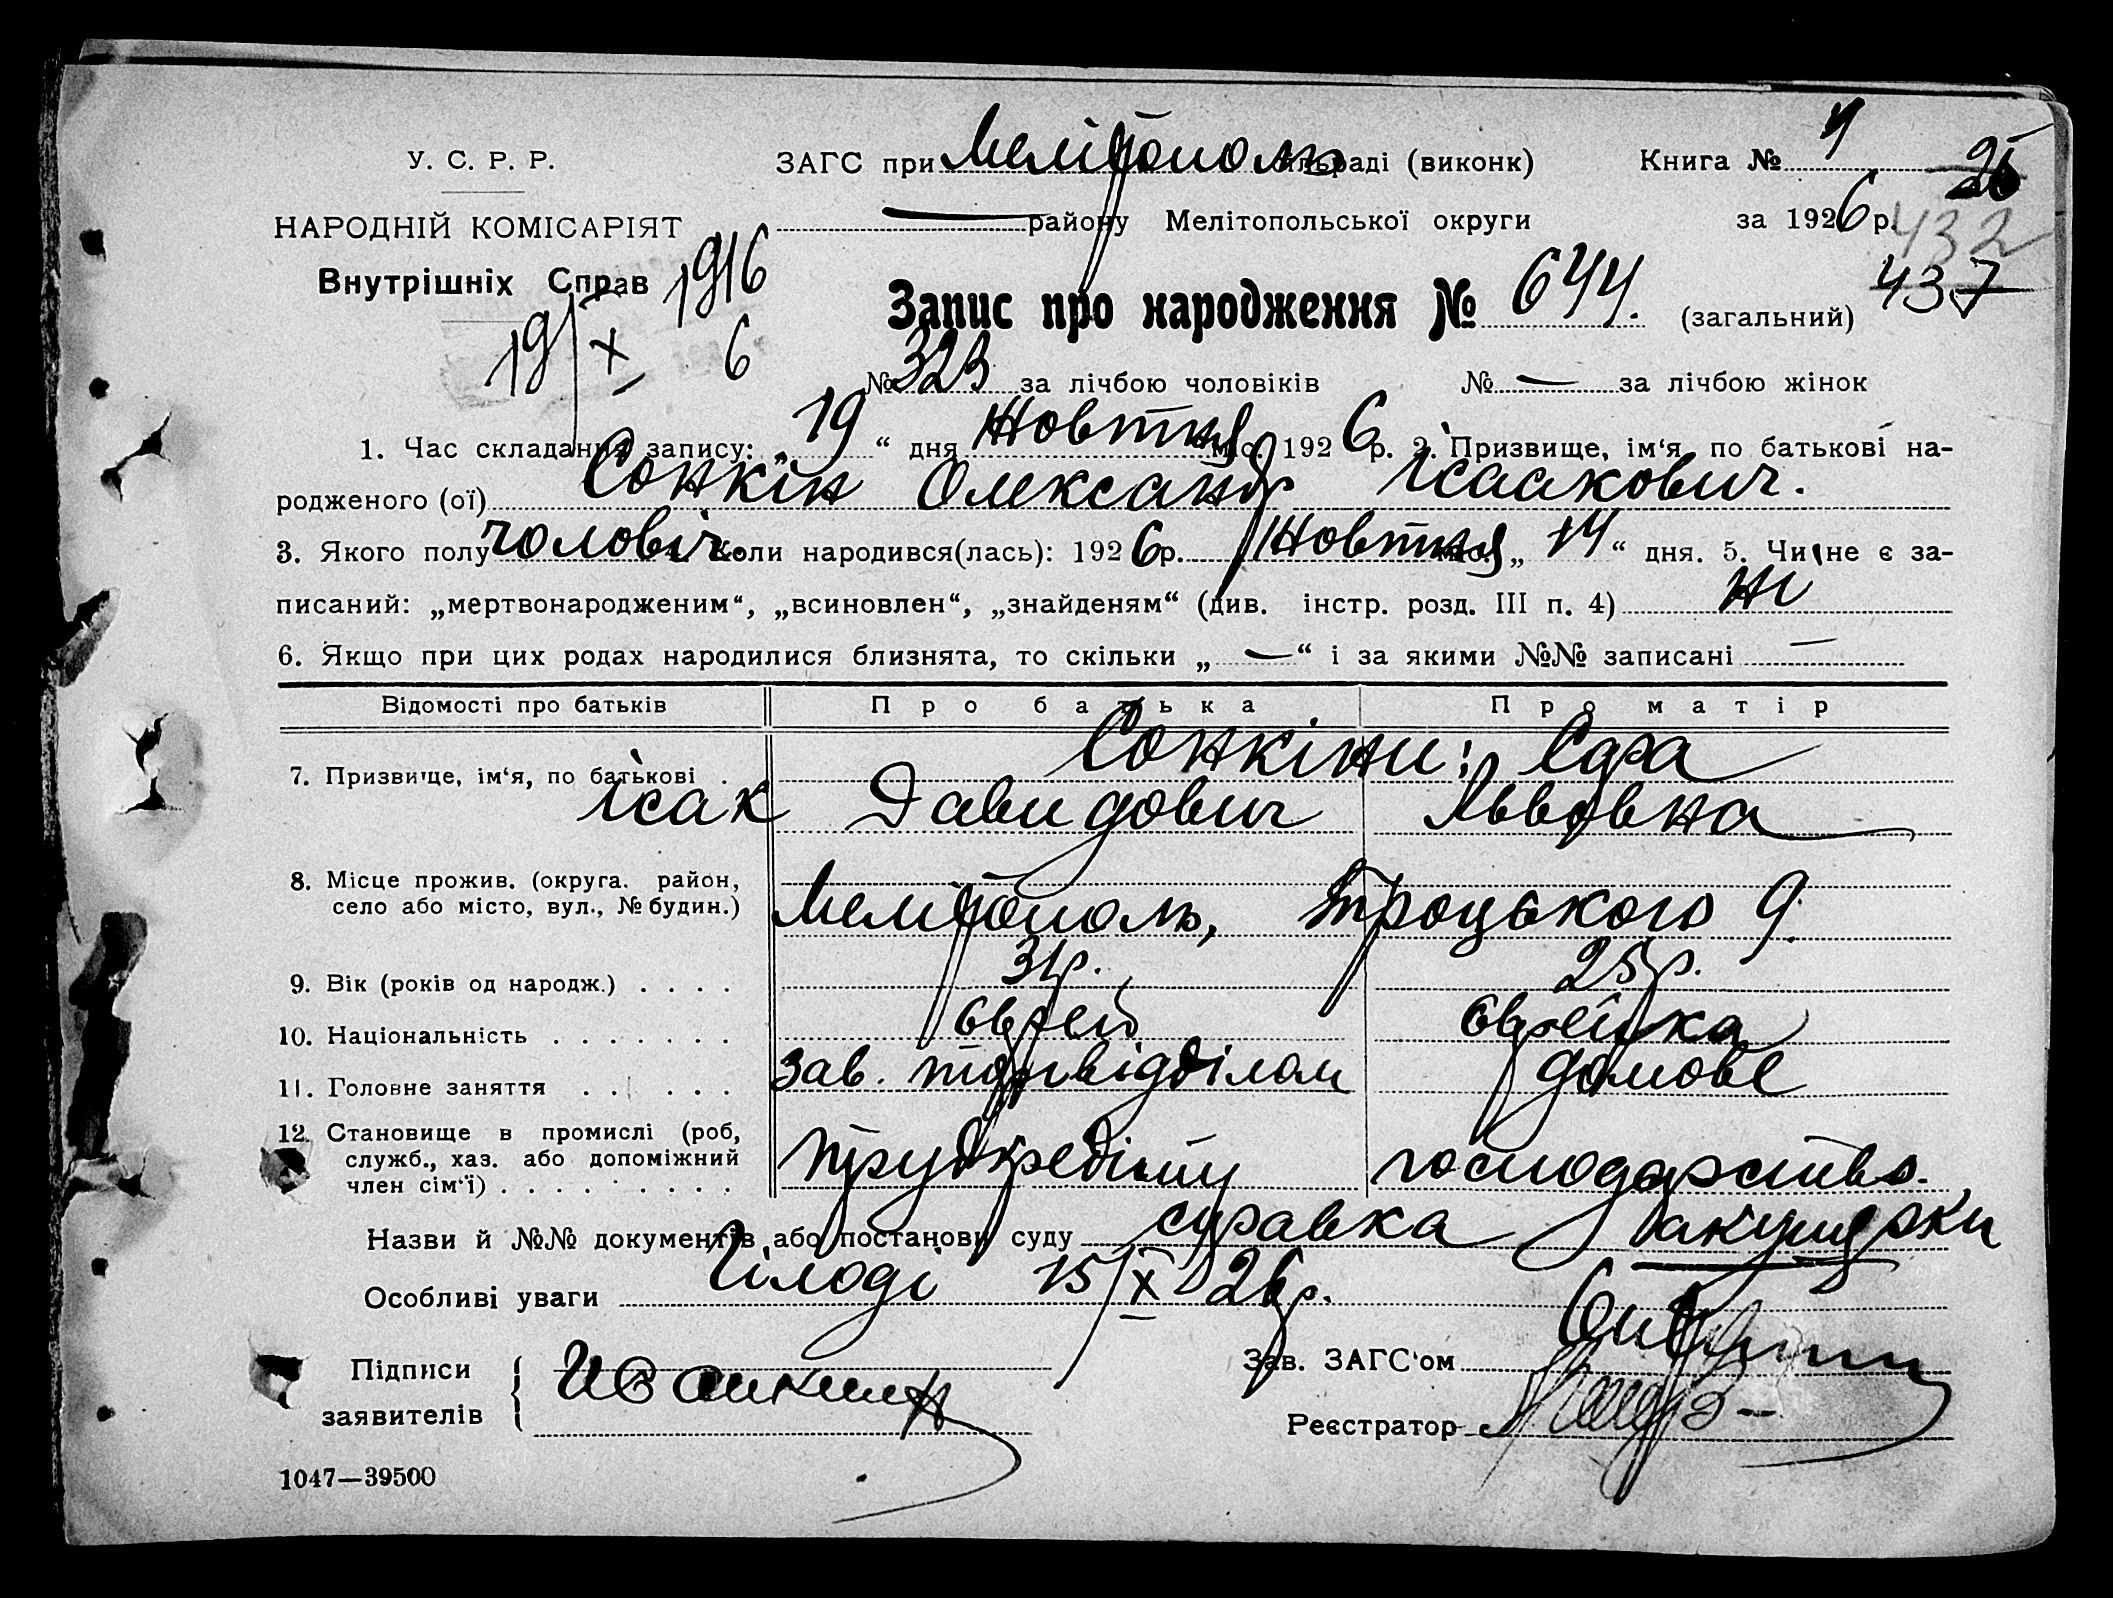 У. С. Р. Р.
НАРОДНІЙ КОМІСАРІЯТ
Внутрішніх Справ
1916
19/X 6
ЗАГС при Мелітополь ільраді (виконк)
району Мелітопольської округи
Книга № 4
за 1926 р.
26
432
437
Запис про народження № 644. (загальний)
№ 323 за лічбою чоловіків № — за лічбою жінок
1. Час складання запису: „ 19 “ дня Жовтня міс. 1926 р. 2. Призвище, ім‘я, по батькові на-
родженого (ої) Сонкін Олександр Ісаакович.
3. Якого полу чоловіч. Коли народився(лась): 1926 р. Жовтня „ 14 “ дня. 5. Чи не є за-
писаний: „мертвонародженим“, „всиновлен“, „знайденям“ (див. інстр. розд. III п. 4) ні
6. Якщо при цих родах народилися близнята, то скільки „ — “ і за якими №№ записані —
Відомості про батьків Про батька Про матір
7. Призвище, ім‘я, по батькові . Сонкіни: Єдра
Ісак Давидович Львовна
8. Місце прожив. (округа, район,
село або місто, вул., № будин.) Мелітополь, Троцького 9.
9. Вік (років од народж.) . . . . 31р. 25р.
10. Національність . . . . . . . єврей єврейка
11. Головне заняття . . . . . . зав. торгвідділом домове
12. Становище в промислі (роб,
служб., хаз. або допоміжний
член сім‘ї) . . . . . . . . . Трудкредіту господарство.
Назви й №№ документів або постанови суду справка акушерки
Особливі уваги 15/X 26р.
Підписи
заявителів
Зав. ЗАГС‘ом
Реєстратор
1047—39500